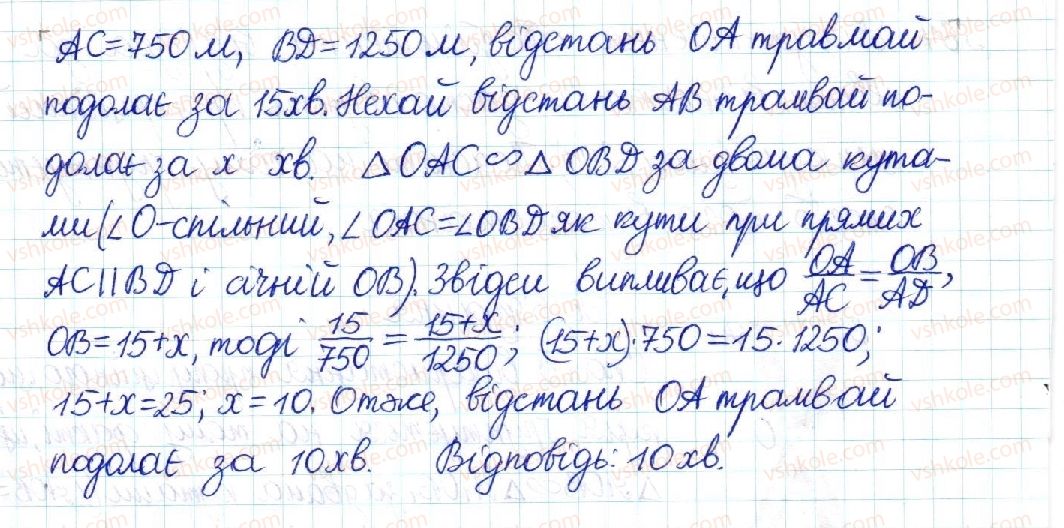 AC=750м, BD=1250м, відстань OA травмай
подолає за 15хв. Нехай відстань AB трамвай по-
долає за x хв. △OAC∽△OBD за двома кута-
ми(∠O-спільний, ∠OAC=∠OBD як кути при прямих
AC||BD і січній OB). Звідси випливає, що OA/AC=OB/AD,
OB=15+x, тоді 15/750=15+x/1250; (15+x)·750=15·1250;
15+x=25; x=10. Отже, відстань OA трамвай
подолає за 10хв. Відповідь: 10хв.